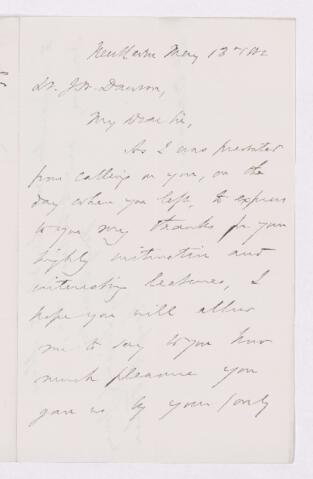 New Haven May 13th 82
Dr. J.W. Dawson,
My Dear Sir,
As I was prevented
from calling on you, on the
day when you left, to express
to you my thanks for your
highly instructive and
interesting lectures, I
hope you will allow
me to say to you how
much pleasure you
gave us by your (only